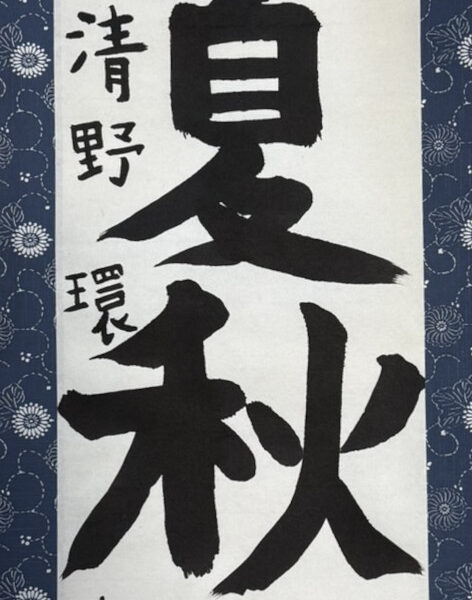 夏秋
清野環